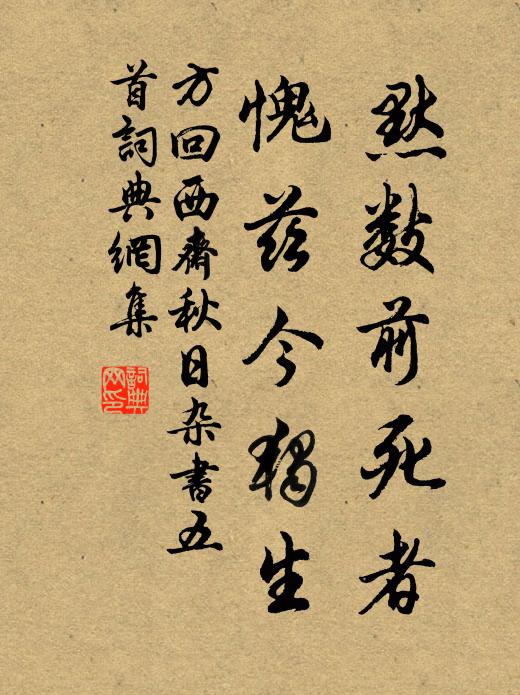 默数前死者
愧兹今独生
方回西齋秋日杂書五
首詞典網集
詞典
网印